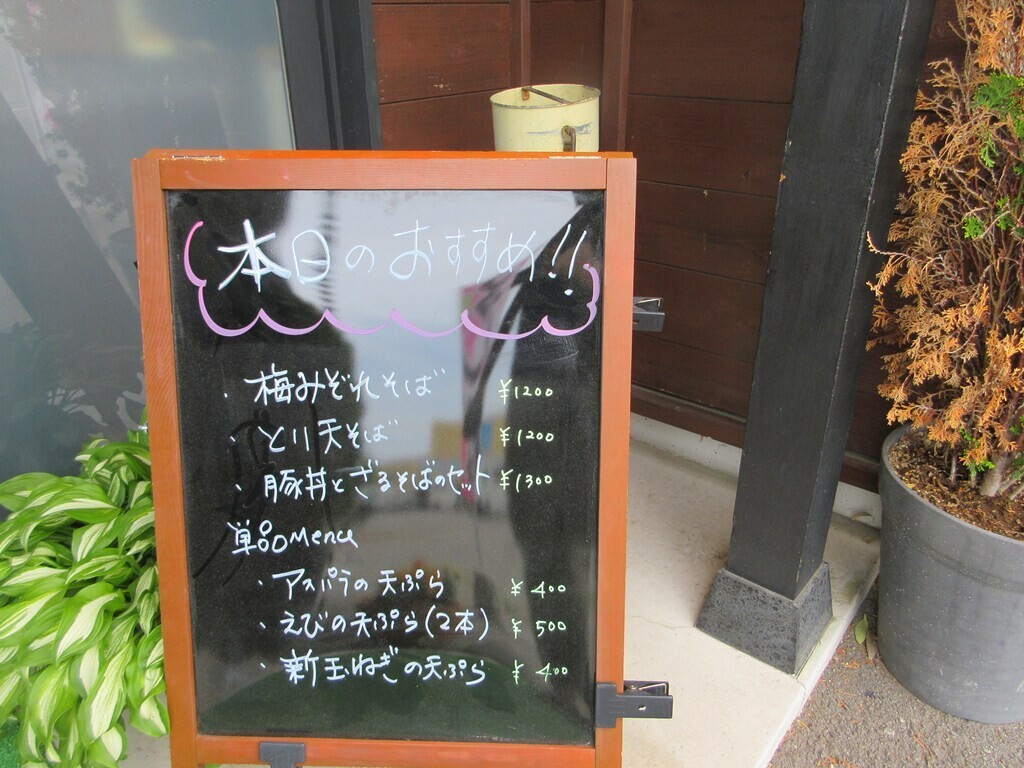 本日のおすすめ!!
・梅みぞれそば ¥1200
・とり天そば ¥1200
・豚丼とざるそばのセット ¥1300
単品Menu
・アスパラの天ぷら ¥400
・えびの天ぷら(2本) ¥500
・新玉ねぎの天ぷら ¥400